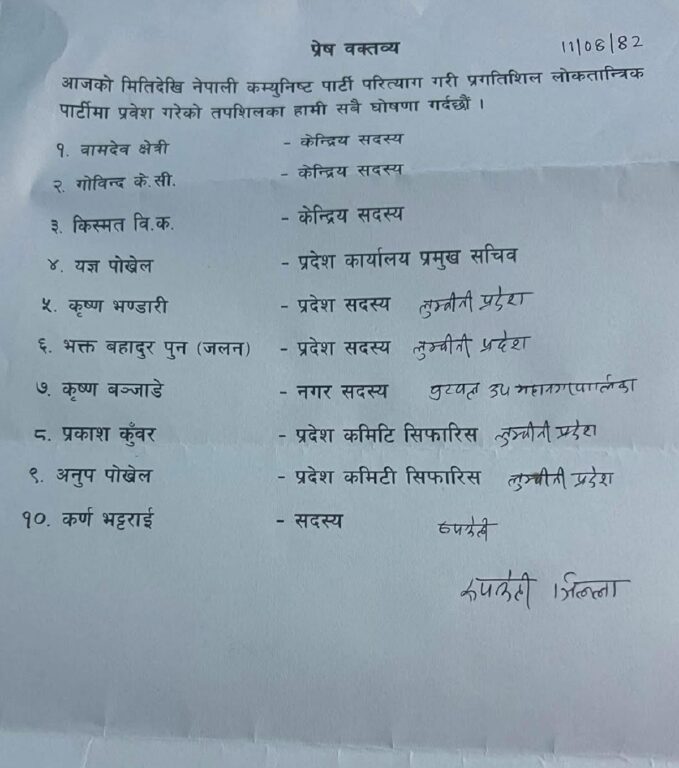 प्रेष वक्तव्य 11/08/82
आजको मितिदेखि नेपाली कम्युनिष्ट पार्टी परित्याग गरी प्रगतिशिल लोकतान्त्रिक
पार्टीमा प्रवेश गरेको तपशिलका हामी सबै घोषणा गर्दछौं ।
१. वामदेव क्षेत्री - केन्द्रिय सदस्य
२. गोविन्द के.सी. - केन्द्रिय सदस्य
३. किस्मत वि.क. - केन्द्रिय सदस्य
४. यज्ञ पोखेल - प्रदेश कार्यालय प्रमुख सचिव
५. कृष्ण भण्डारी - प्रदेश सदस्य लुम्बीनी प्रदेश
६. भक्त बहादुर पुन (जलन) - प्रदेश सदस्य लुम्बीनी प्रदेश
७. कृष्ण बञ्जाडे - नगर सदस्य उपमहानगरपालिका
८. प्रकाश कुँवर - प्रदेश कमिटि सिफारिस लुम्बीनी प्रदेश
९. अनुप पोखेल - प्रदेश कमिटी सिफारिस लुम्बीनी प्रदेश
१०. कर्ण भट्टराई - सदस्य रुपन्देही
रुपन्देही जिल्ला